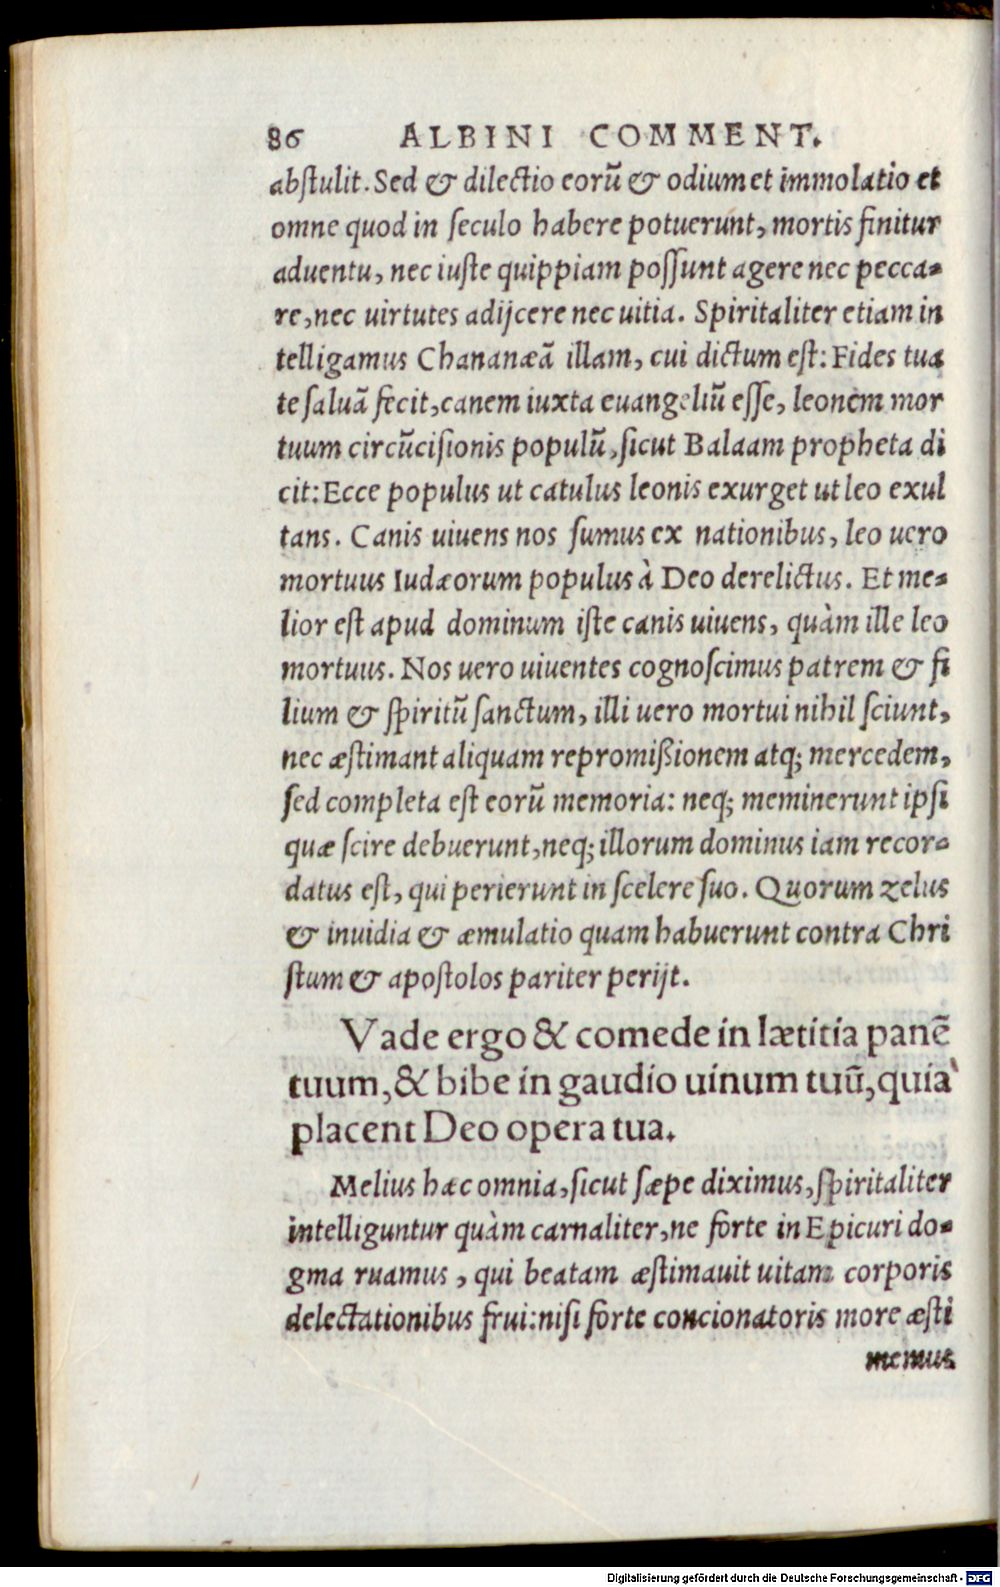 86 ALBINI COMMENT.
abſtulit. Sed & dilectio eorũ & odium et immolatio et
omne quod in ſeculo habere potuerunt, mortis finitur
aduentu, nec iuſte quippiam poſſunt agere nec pecca-
re, nec uirtutes adijcere nec uitia. Spiritaliter etiam in
telligamus Chananæã illam, cui dictum eſt: Fides tua
te ſaluã fecit, canem iuxta euangeliũ eſſe, leonem mor
tuum circũciſionis populũ, ſicut Balaam propheta di
cit: Ecce populus ut catulus leonis exurget ut leo exul
tans. Canis uiuens nos ſumus ex nationibus, leo uero
mortuus Iudæorum populus à Deo derelictus. Et me-
lior eſt apud dominum iſte canis uiuens, quàm ille leo
mortuus. Nos uero uiuentes cognoſcimus patrem & fi
lium & ſpiritũ ſanctum, illi uero mortui nihil ſciunt,
nec æſtimant aliquam repromißionem atq; mercedem,
ſed completa eſt eorũ memoria: neq; meminerunt ipſi
quæ ſcire debuerunt, neq; illorum dominus iam recor-
datus eſt, qui perierunt in ſcelere ſuo. Quorum zelus
& inuidia & æmulatio quam habuerunt contra Chri
ſtum & apoſtolos pariter perijt.
Vade ergo & comede in lætitia panẽ
tuum, & bibe in gaudio uinum tuũ, quia
placent Deo opera tua.
Melius hæc omnia, ſicut ſæpe diximus, ſpiritaliter
intelliguntur quàm carnaliter, ne forte in Epicuri do-
gma ruamus, qui beatam æſtimauit uitam corporis
delectationibus frui: niſi forte concionatoris more æſti
memus
Digitalisierung gefördert durch die Deutsche Forschungsgemeinschaft - DFG